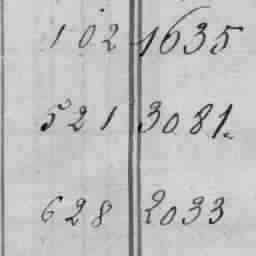 102 1635
521 3081.
628 2033